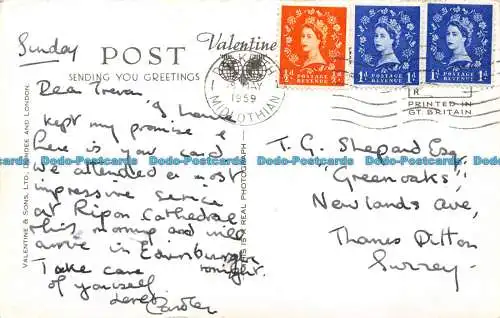 Sunday
POST
Valentine
SENDING YOU GREETINGS
Dear Trevor,
I have
kept my promise &
here is your card
We attended a most
impressive service
at Ripon Cathedral
this morning and will
arrive in Edinburgh
tonight.
Take care
of yourself
Love,
VALENTINE & SONS, LTD., DUNDEE AND LONDON.
THIS IS A REAL PHOTOGRAPH
MAY
1959
MIDLOTHIAN
½d POSTAGE REVENUE ½d
1d POSTAGE REVENUE 1d
1d POSTAGE REVENUE 1d
R
PRINTED IN
GT. BRITAIN
T. G. Shepard Esq.,
"Greenoaks",
Newlands Ave,
Thames Ditton
Surrey.
Dodo-Postcards Dodo-Postcards Dodo-Postcards Dodo-Postcards Dodo-Postcards Dodo-Postcards